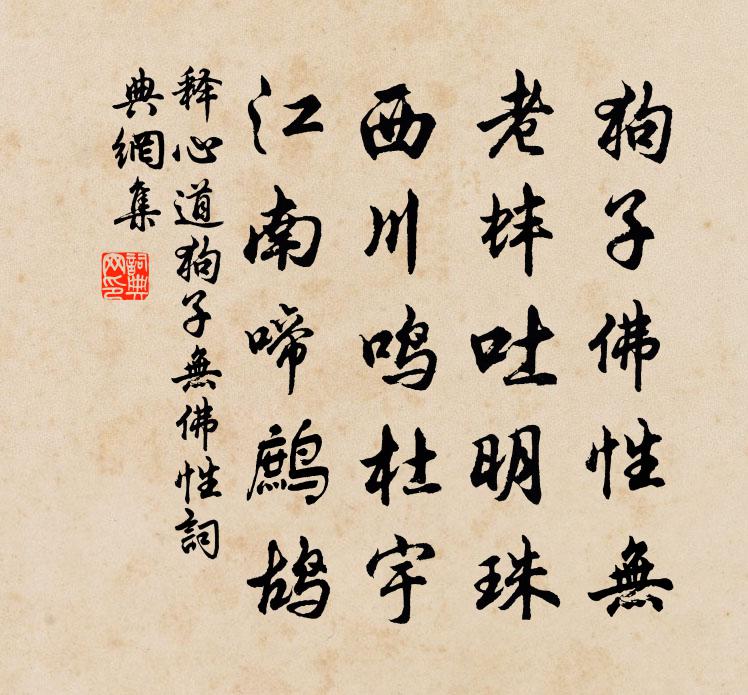 狗子佛性無
老蚌吐明珠
西川鳴杜宇
江南啼鷓鴣
释心道狗子無佛性詞
典網集
詞典
网印